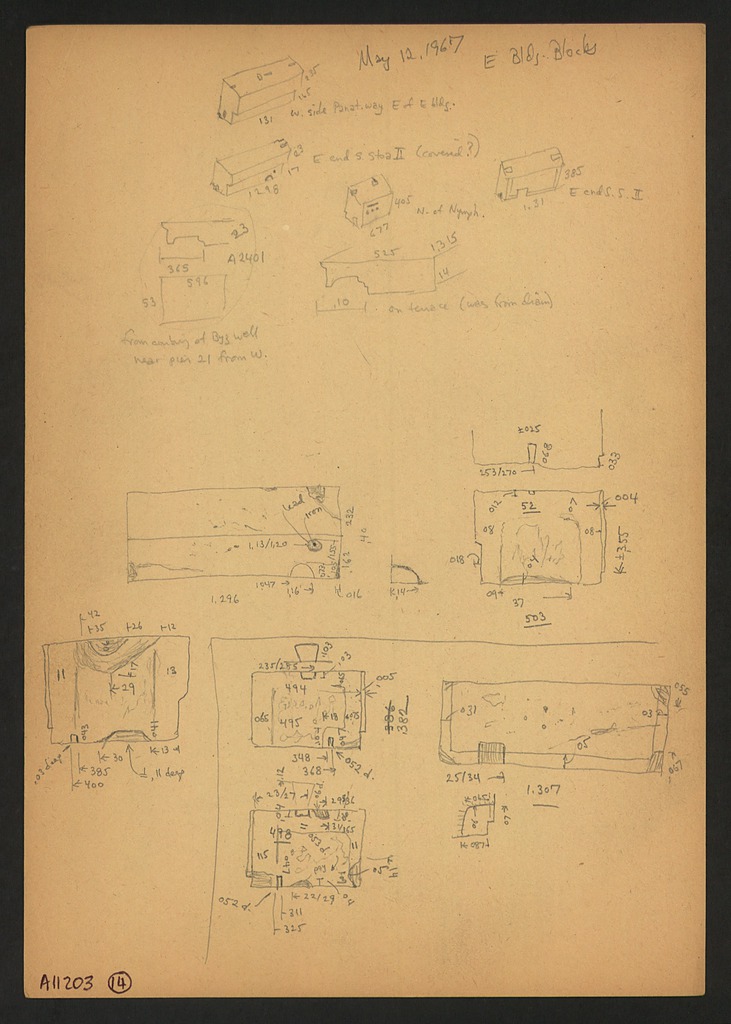 May 12, 1967
E Bldg. Blocks
.235
.165
131
W. side Panat. way E of E bldg.
.23
17
1.298
E end S. Stoa II (covered?)
.405
.677
N. of Nymph.
.385
1.31
E end S. S. II
.23
365
A2401
596
53
from curbing of Byz well
near pier 21 from W.
525
1.315
.14
.10
on terrace (was from drain)
±025
.068
253/270
.033
lead
iron
.232
.40
1.13/1.20
.162
1.047
.16
.016
1.296
14
012
52
07
004
08
08
±355
018
09
37
503
42
35
26
12
11
17
13
29
043
041
.02 deep
30
13
385
400
±.11 deep
.103
.03
235/255
.005
494
065
495
18
047
386
382
348
052 d.
368
±.12
23/27
498
053
11
115
047
11
052 d.
22/29
311
325
055
031
03
05
25/34
1.307
065
07
087
A11203
14